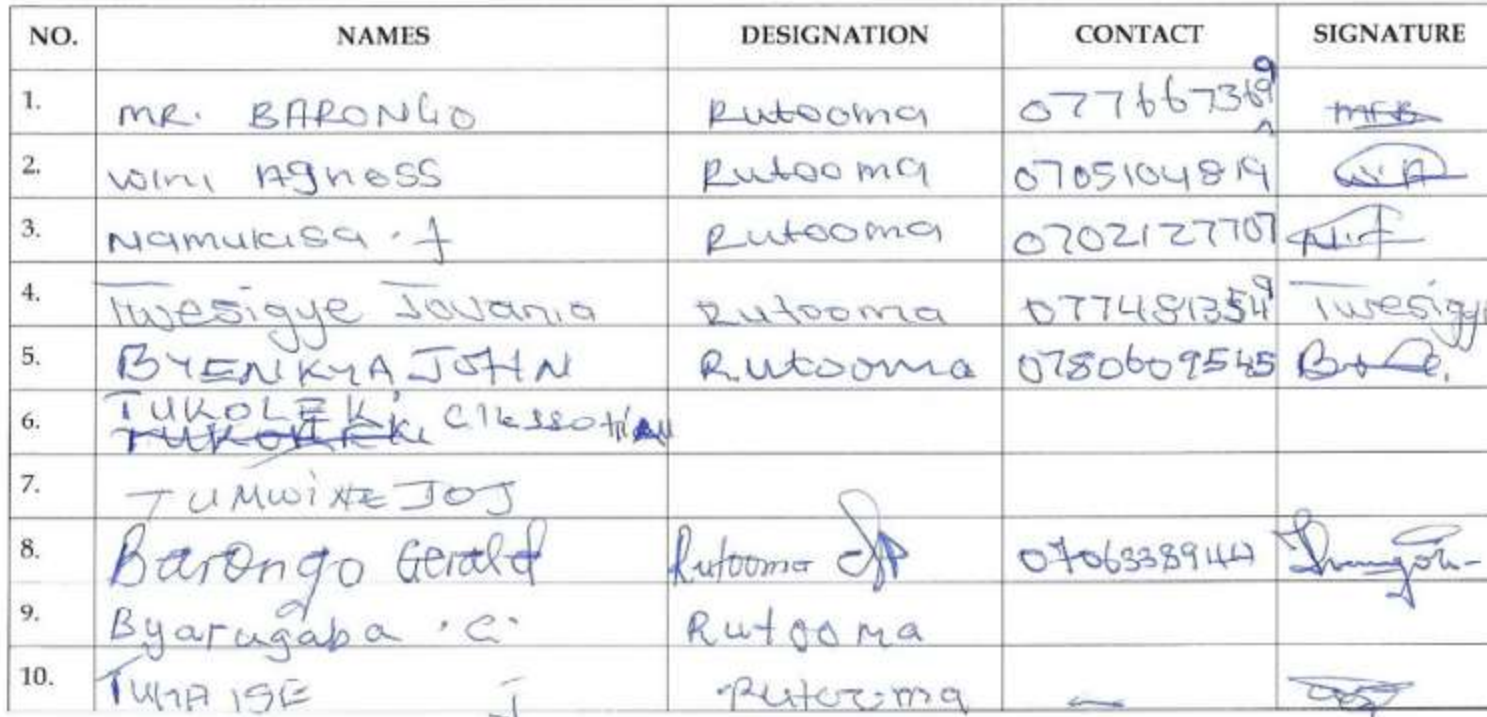 NO. NAMES DESIGNATION CONTACT SIGNATURE
1. MR. BARONGO Rutooma 0776673699 MR.B
2. WINI Agness Rutooma 0705104819 W.A
3. Namukisa . J Rutooma 0702127707 N.J
4. Twesigye Jovania Rutooma Twesigye
5. BYENKYA JOHN Rutooma 0780609545
6. TUKOLEKI
7. TUMWINE JOJ
8. Barongo Gerald Rutooma
9. Byarugaba . C. Rutooma
10. TUHAISE J Rutooma -